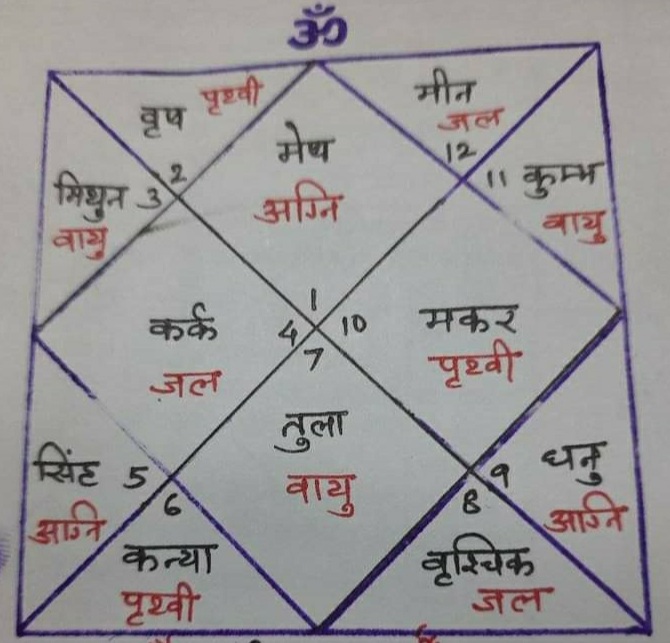 ॐ
वृष पृथ्वी
2
मेष
अग्नि
1
मीन
जल
12
मिथुन 3
वायु
11 कुम्भ
वायु
कर्क
4
जल
10 मकर
पृथ्वी
7
तुला
वायु
सिंह 5
अग्नि
6
कन्या
पृथ्वी
9 धनु
अग्नि
8
वृश्चिक
जल